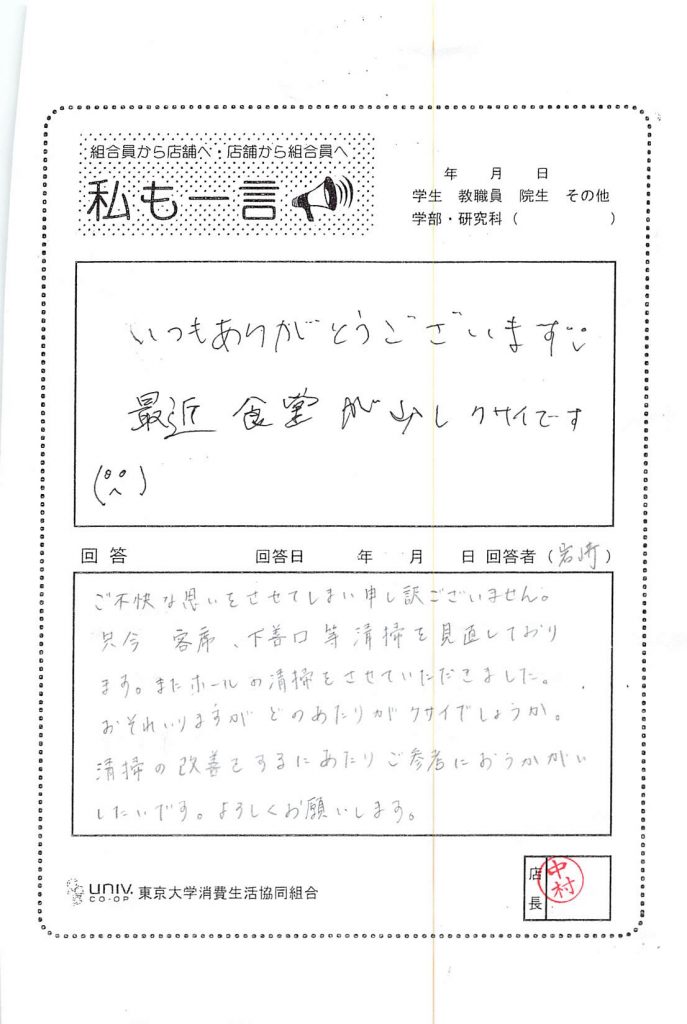 組合員から店舗へ・店舗から組合員へ
私も一言
年 月 日
学生 教職員 院生 その他
学部・研究科( )
いつもありがとうございます
最近 食堂が少しクサイです
回答 回答日 年 月 日 回答者(岩崎)
ご不快な思いをさせてしまい申し訳ございません。
只今 客席、下善口等清掃を見直しており
ます。またホールの清掃をさせていただきました。
おそれいりますがどのあたりがクサイでしょうか。
清掃の改善をするにあたりご参考におうかがい
したいです。よろしくお願いします。
UNIV. CO-OP 東京大学消費生活協同組合
店長
中村